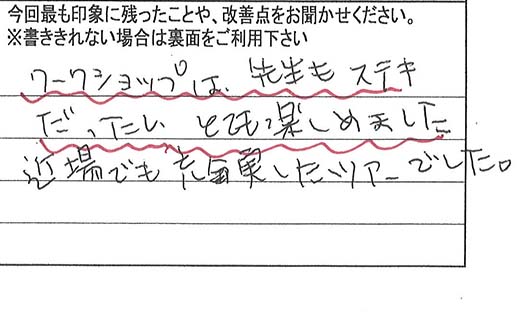 今回最も印象に残ったことや、改善点をお聞かせください。
※書ききれない場合は裏面をご利用下さい
ワークショップは、先生もステキ
だったし、とても楽しめました
近場でも充実したツアーでした。